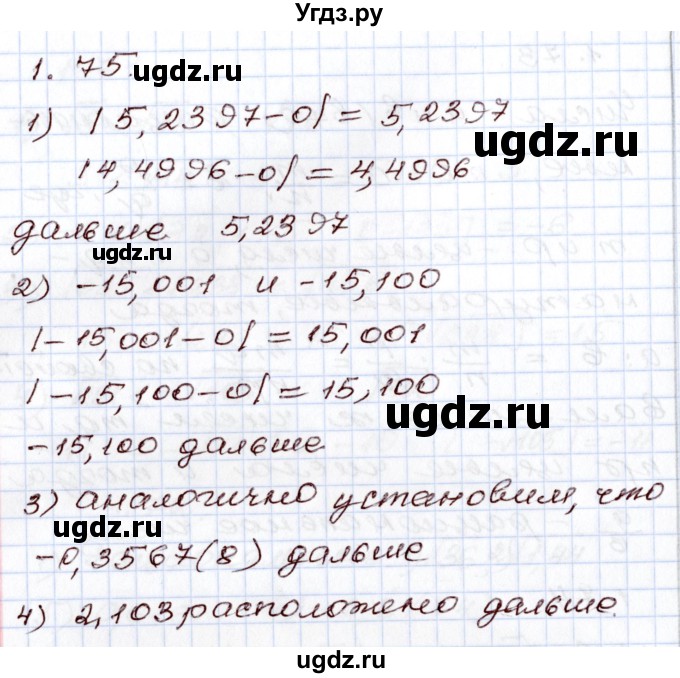 Угдз.ру
1.75.
ugdz.ru
1) |5,2397-0|= 5,2397
ugdz.ru
|4,4996-0|= 4,4996
дальше 5,2397
ugdz.ru
2) -15,001 и -15,100
|-15,001-0|= 15,001
|-15,100-0|= 15,100
ugdz.ru
-15,100 дальше
ugdz.ru
3) аналогично установим, что
-0,3567(8) дальше
ugdz.ru
ugdz.ru
4) 2,103 расположено дальше.
ugdz.ru